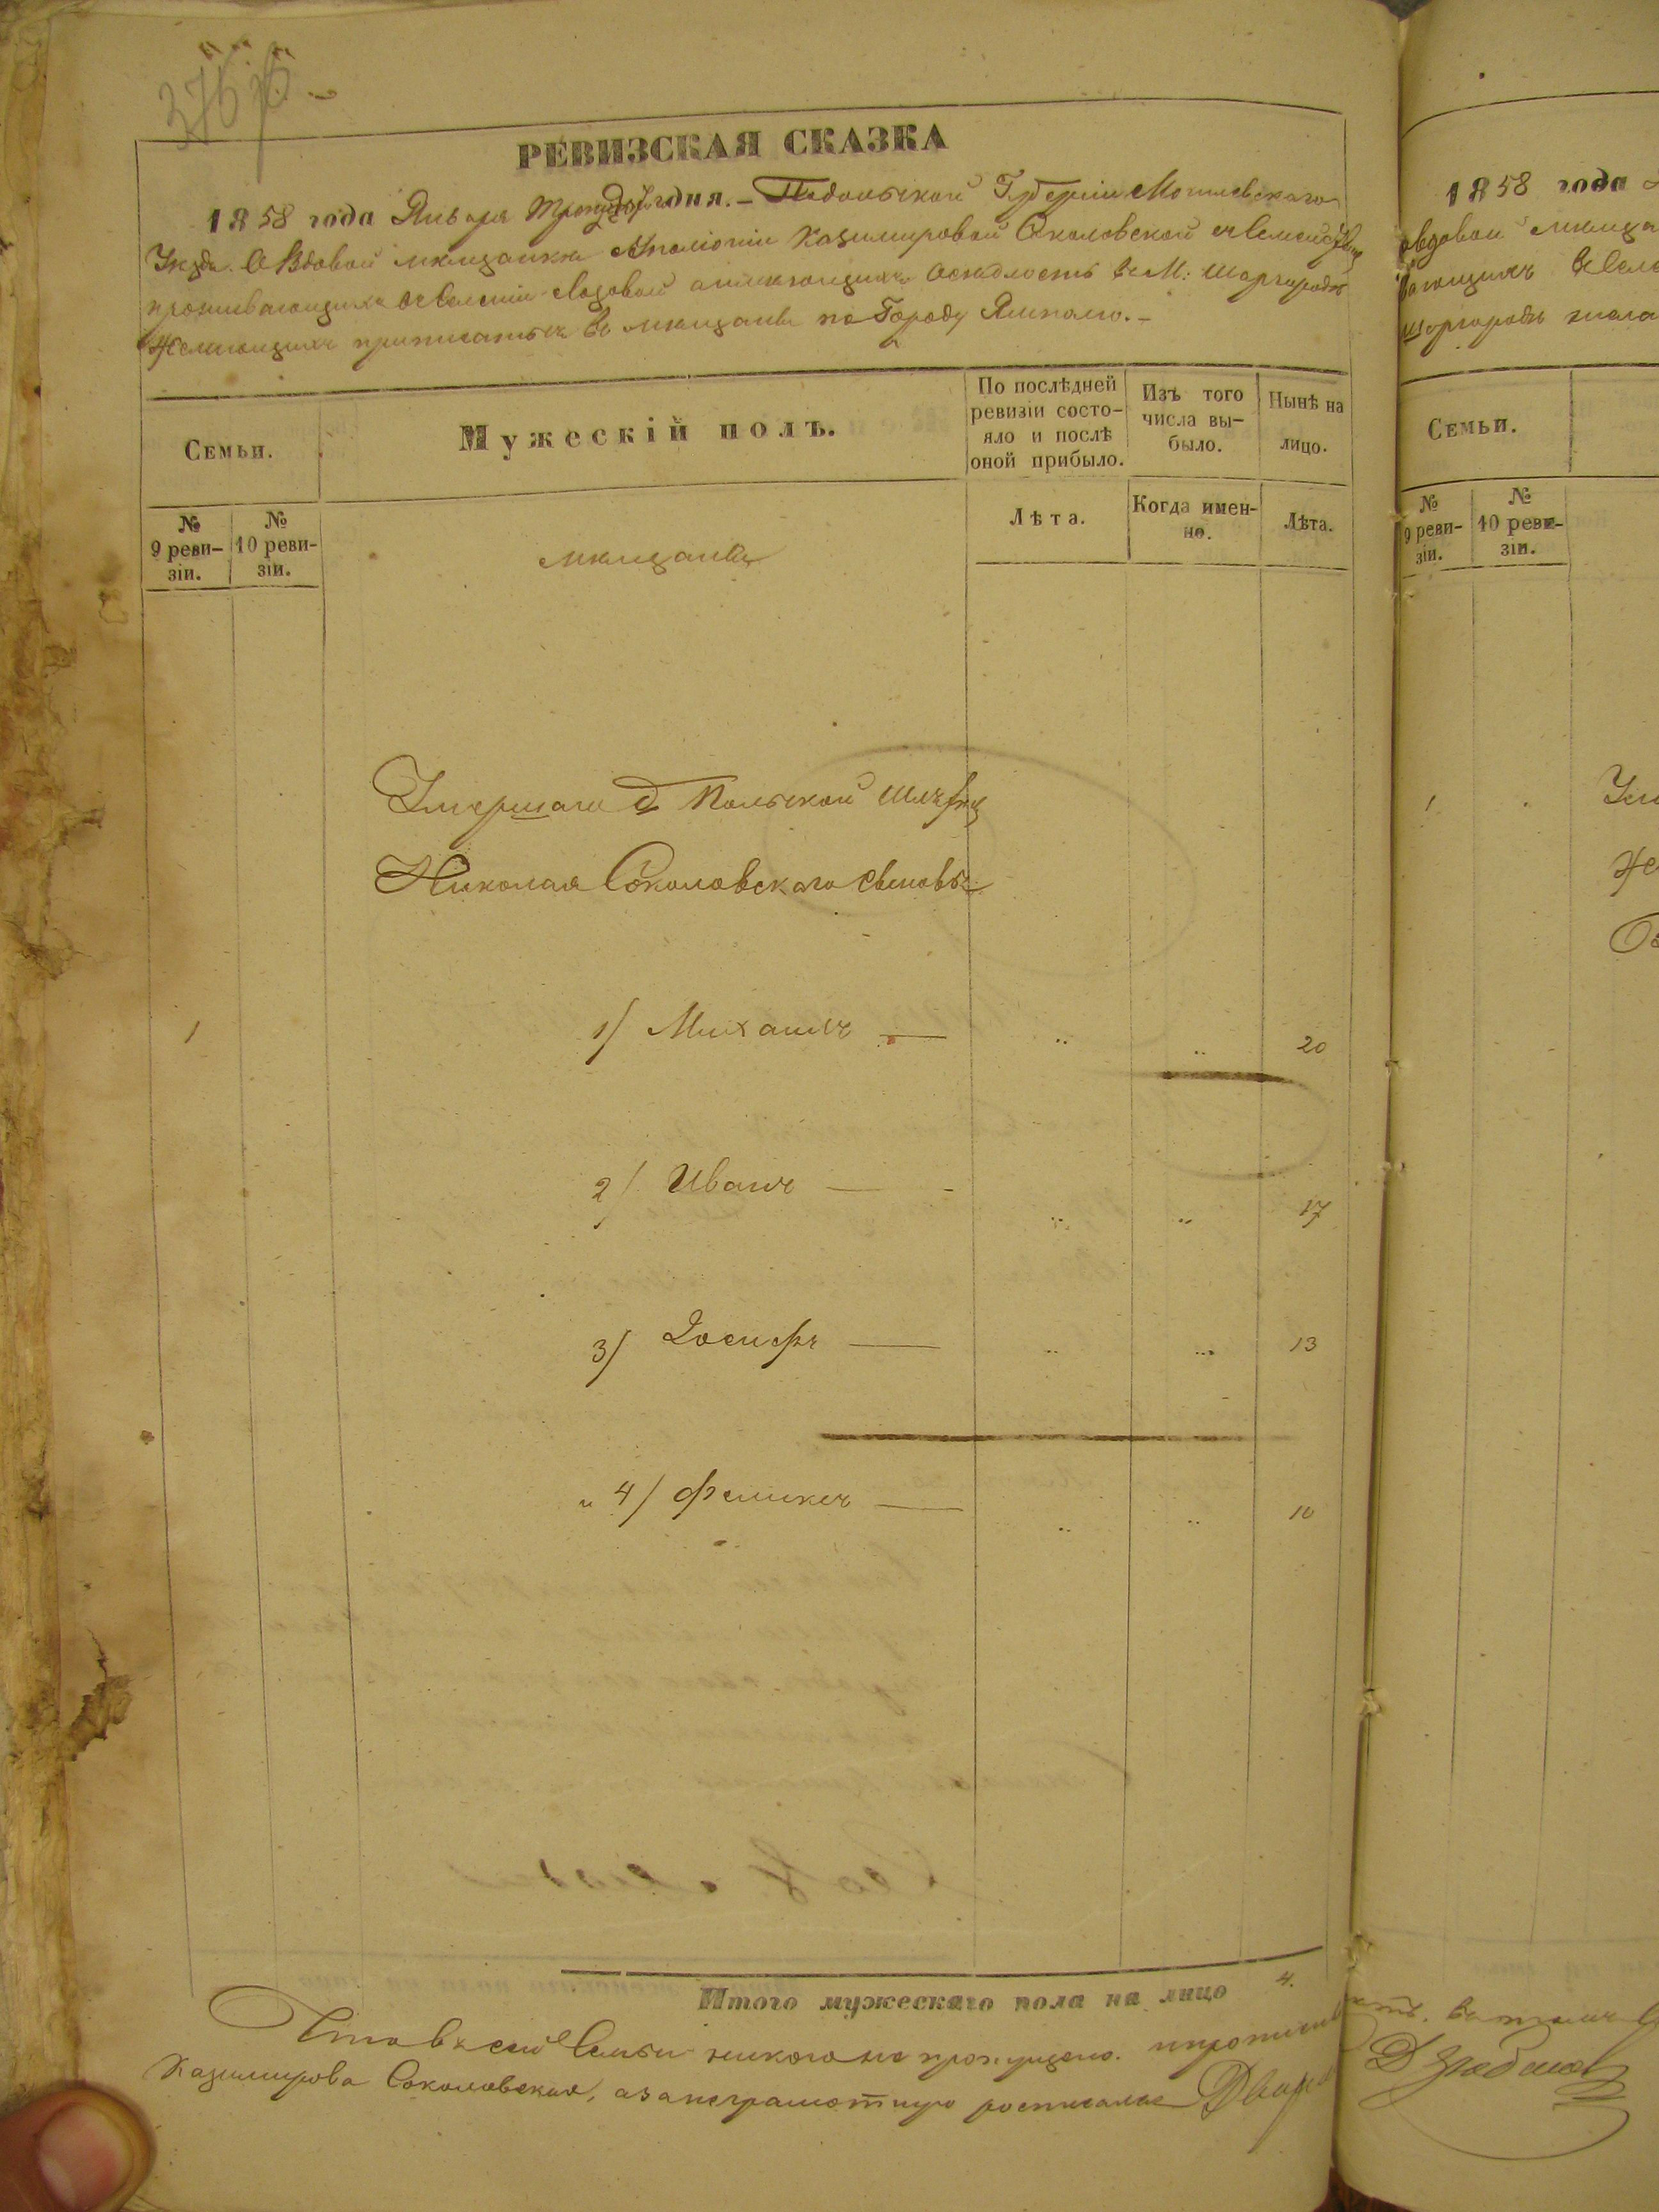 37
РЕВИЗСКАЯ СКАЗКА
1858 года Января дня. — Подольской Губерніи Могилевскаго
Уѣзда. О Вдовой мѣщанкѣ Аполіоніи Казимировой Соколовской съ Семействомъ
проживающихъ въ Селеніи Лозовой а имѣющихъ осѣдлость въ М: Шаргородѣ
Желающихъ приписатьсь въ мѣщане по Городу Ямполю. —
Семьи.
Мужескій полъ.
По послѣдней ревизіи состо-
яло и послѣ
оной прибыло.
Изъ того
числа вы-
было.
Нынѣ на
лицо.
№
9 реви-
зіи.
№
10 реви-
зіи.
Лѣта.
Когда имен-
но.
Лѣта.
мѣщане
Умершаго Польской
Николая Соколовскаго сыновья
1
1/ Михаилъ — „ „ 20
2/ Иванъ — „ „ 17
3/ Іосифъ — „ „ 13
и 4/ Феликсъ — „ „ 10
Итого мужескаго пола на лицо 4.
Что въ сей Семьи никого не пропущено.
Казимирова Соколовская, а за неграмотную росписался
1858 года
вдовой мѣща
вающихъ въ Селе
Шаргородѣ жела
Семьи.
№
9 реви-
зіи.
№
10 реви-
зіи.
1